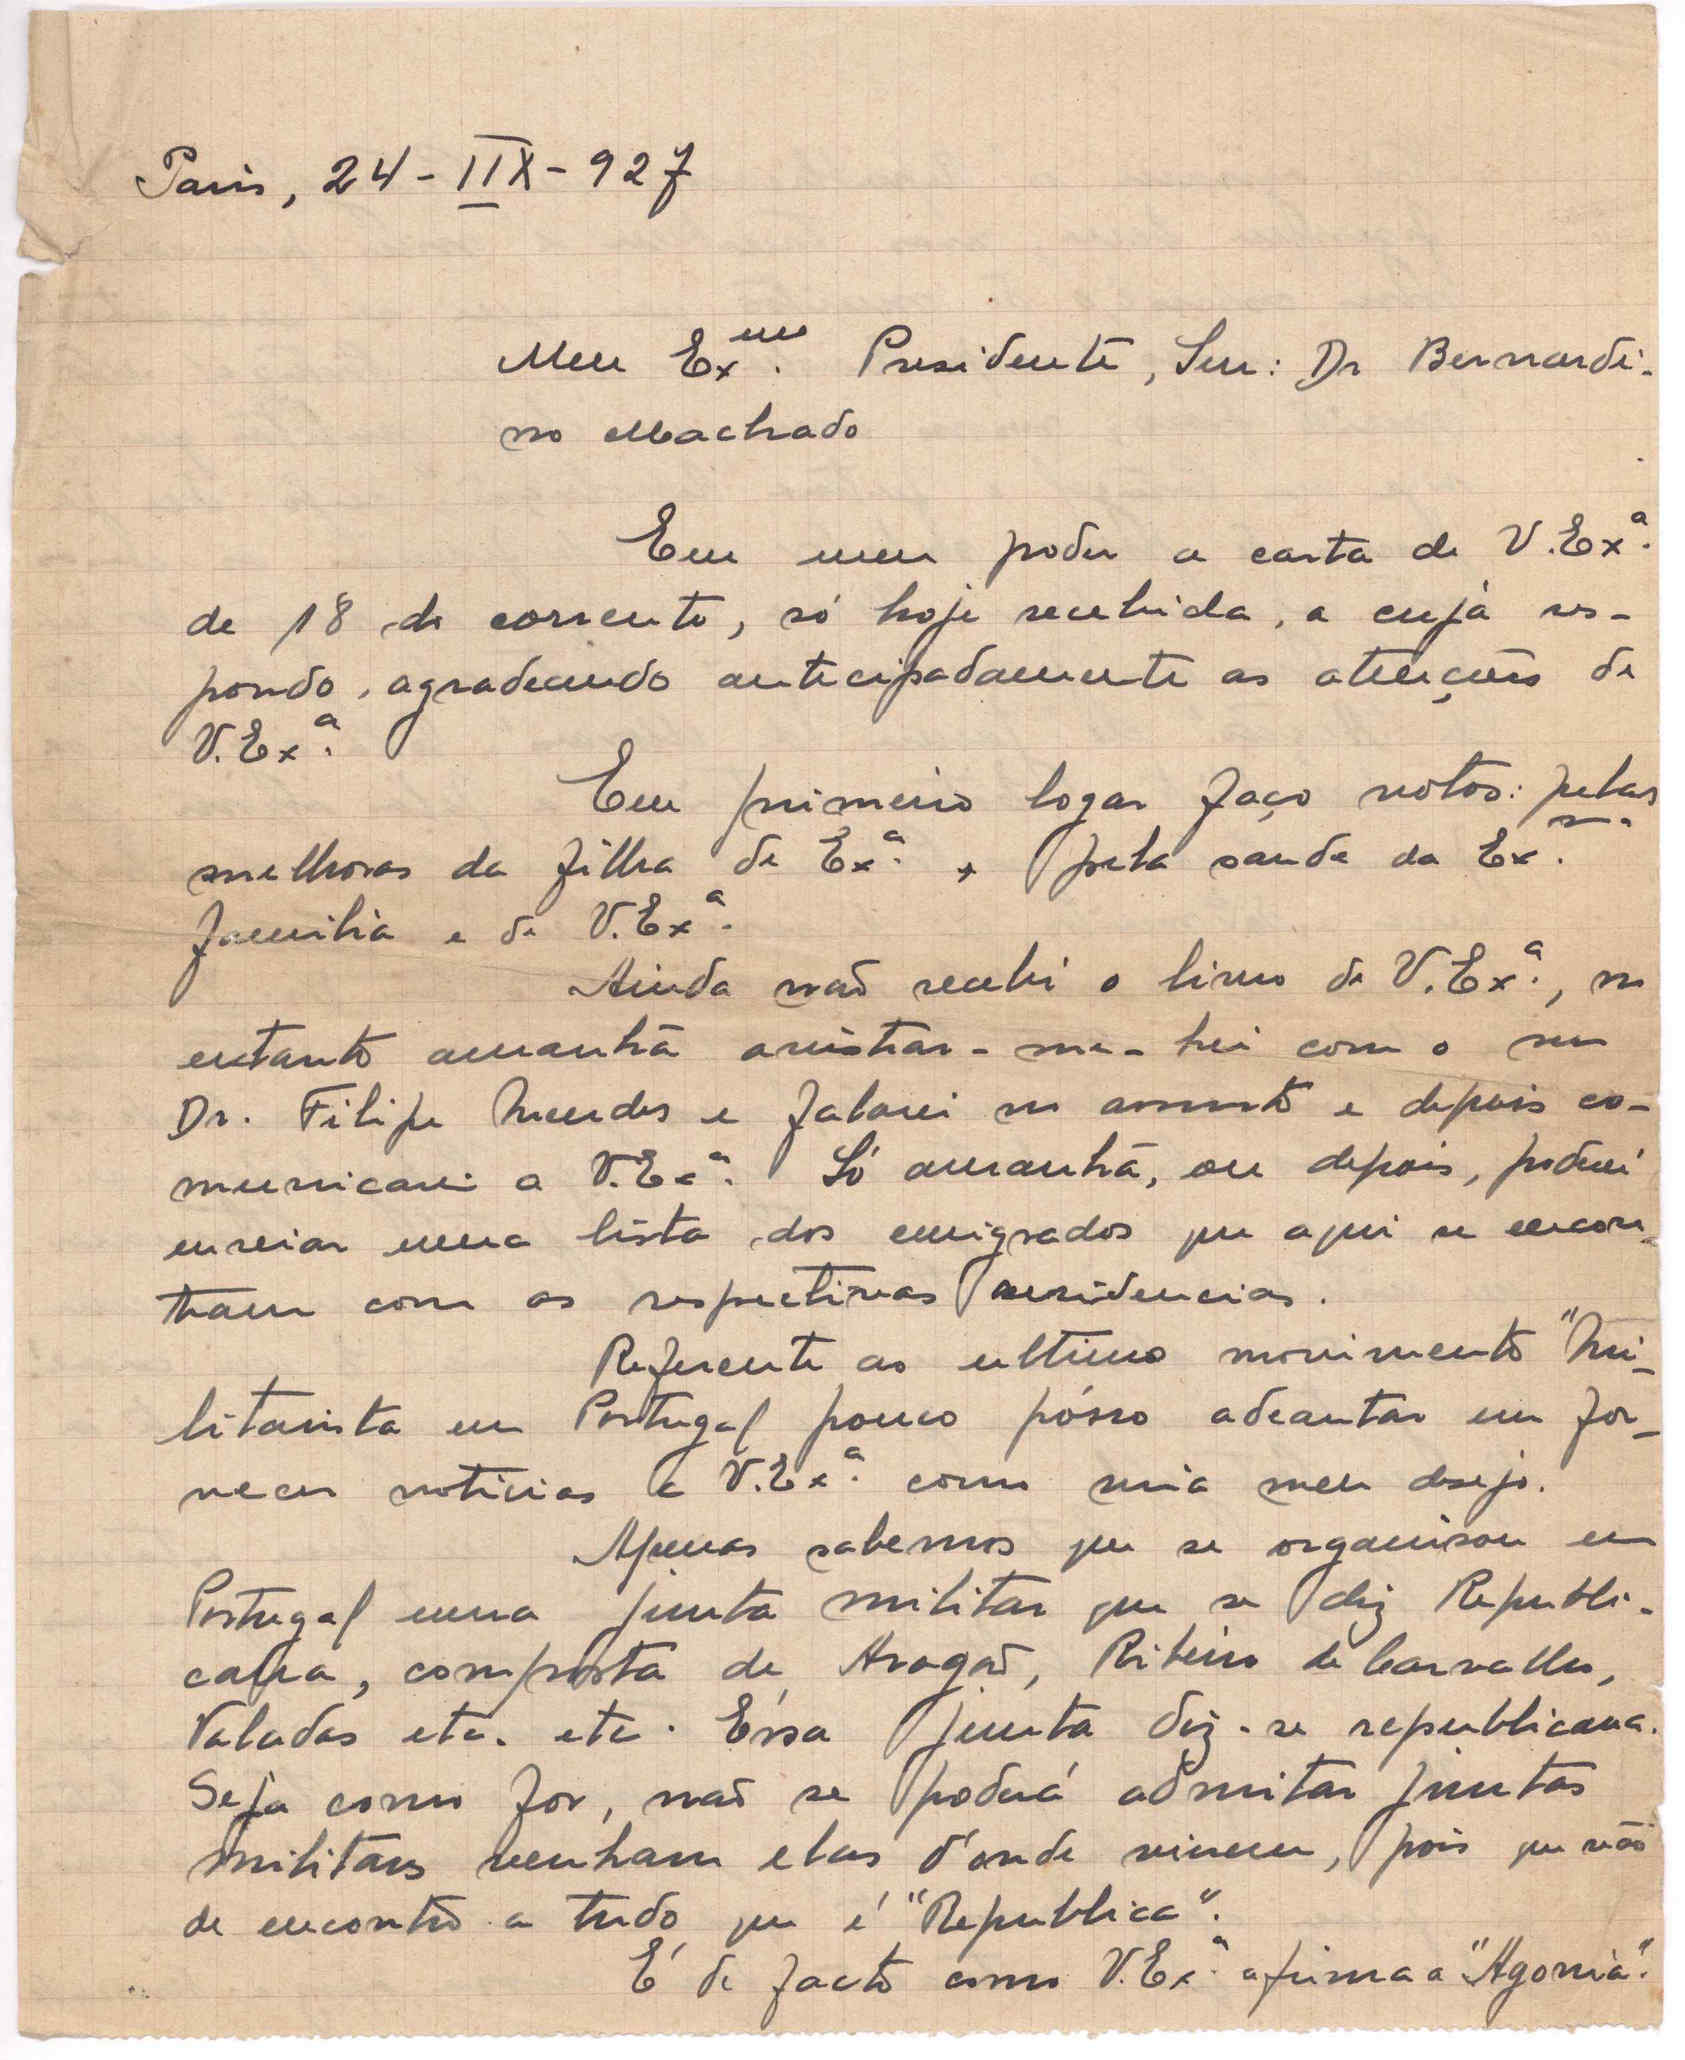 Paris, 24-IIX-927
Meu Ex.mo Presidente, Snr: Dr Bernardi-
no Machado
Em meu poder a carta de V.Ex.ª
de 18 do corrente, só hoje recebida, a cujá res-
pondo, agradecendo antecipadamente as atenções de
V.Ex.ª
Em primeiro logar faço votos: pelas
melhoras da filha de Ex.ª, pela saude da Ex.ma
familia e de V.Ex.ª
Ainda naõ recebi o livro de V.Ex.ª, no
entanto amanhã avistar-me-hei com o snr
Dr. Filipe Mendes e falarei no assunto e depois co-
municarei a V.Ex.ª. Só amanhã, ou depois, poderei
enviar uma lista dos emigrados que aqui se encon-
tram com as respectivas residencias.
Referente ao ultimo movimento "Mi-
litarista em Portugal pouco pósso adeantar em for-
necer noticias a V.Ex.ª como seria meu desejo.
Apenas sabemos que se organisou em
Portugal uma junta militar que se diz Republi-
cana, composta de Aragaõ, Ribeiro de Carvalho,
Valadas etc. etc. Éssa junta diz-se republicana.
Seja como for, naõ se poderá admitar juntas
militares venham elas d'onde vierem, pois que vão
de encontro a tudo que é "Republica".
É de facto como V.Ex.ª afirma a "Agonia".